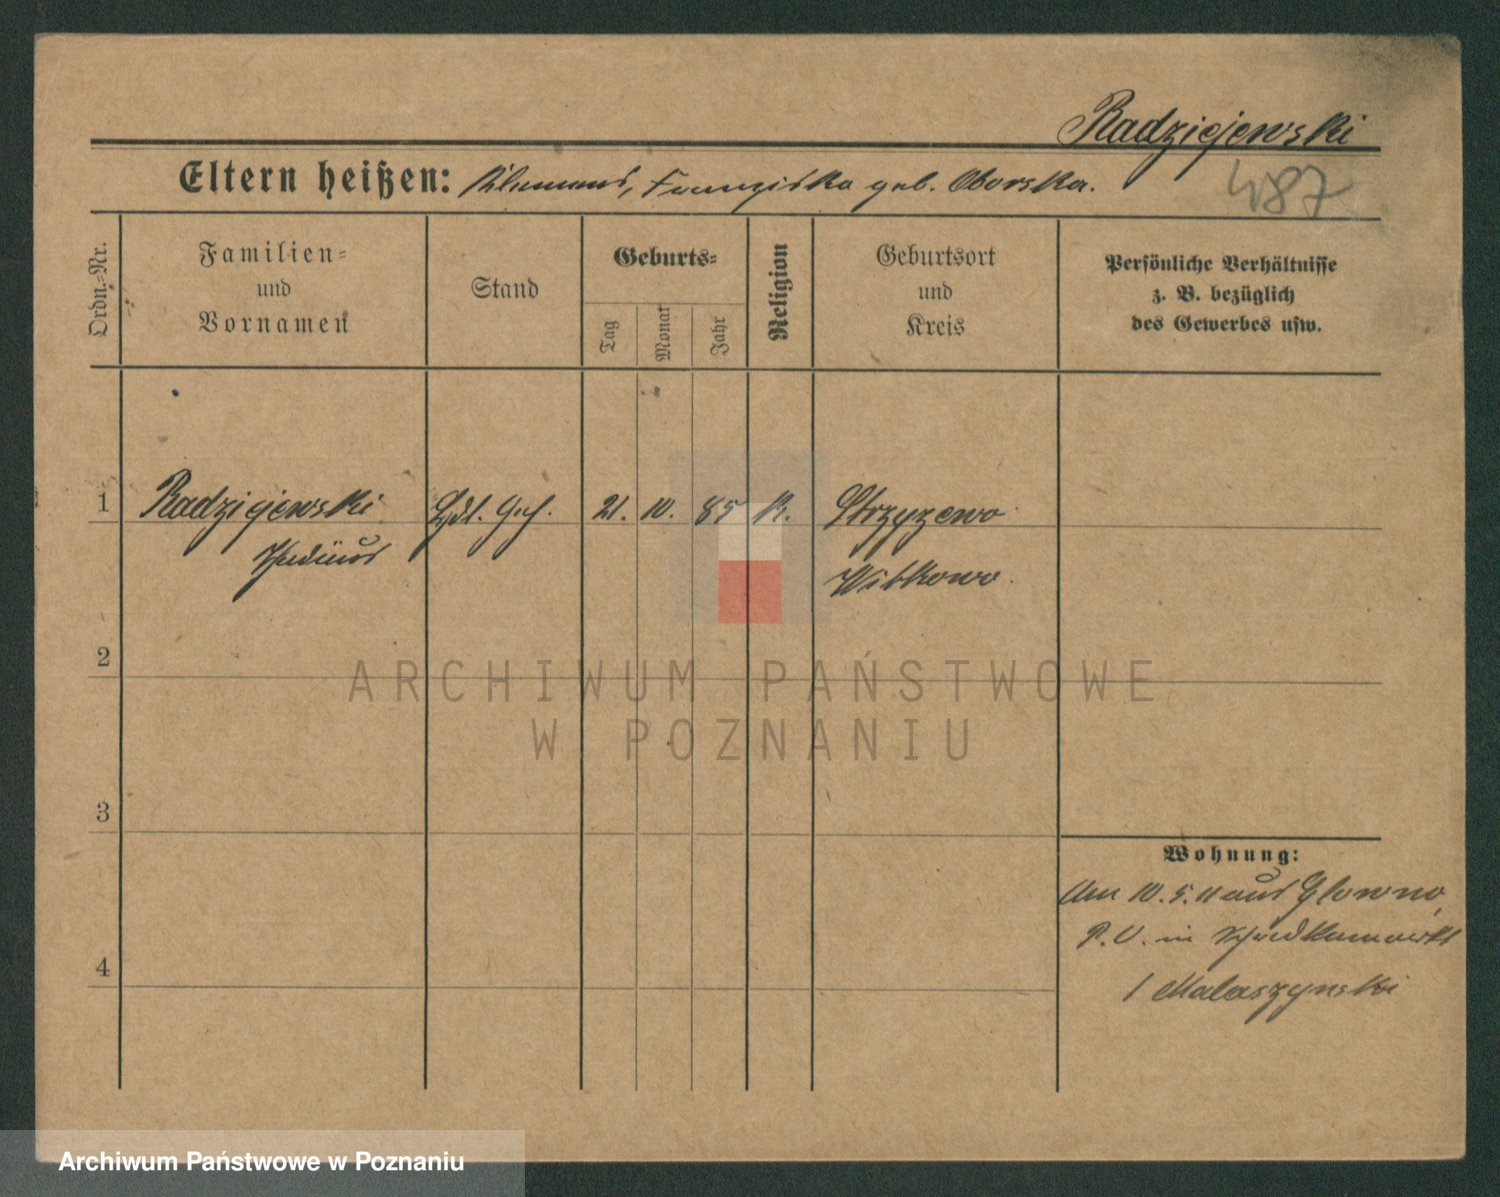 Radziejewski
Eltern heißen: Klemens, Franziska geb. Oborska.
487
Ordn.-Nr.
Familien-
und
Vornamen
Stand
Geburts-
Tag
Monat
Jahr
Religion
Geburtsort
und
Kreis
Persönliche Verhältnisse
z. B. bezüglich
des Gewerbes usw.
1 Radziejewski 21. 10. 85 K. Strzyzewo
Thadäus
Witkowo.
2
ARCHIWUM PAŃSTWOWE
W POZNANIU
3
Wohnung:
Am 10.5.11 aus Glowno,
P.O. in
4
/ Malaszynski
Archiwum Państwowe w Poznaniu